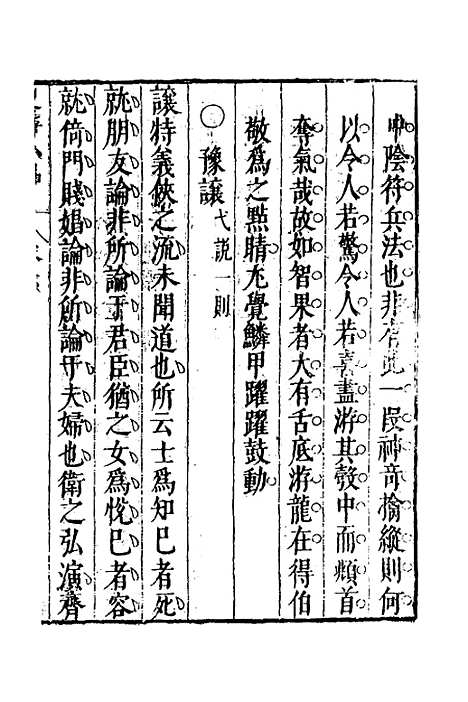 中陰符兵法也非有此一段神奇擒縱則何
以令人若驚令人若喜盡游其彀中而頫首
奪氣哉故如智果者大有舌底游龍在得伯
敬爲之點睛尤覺鱗甲躍躍鼓動
○豫讓弋説一則
讓特義俠之流未聞道也所云士爲知巳者死
就朋友論非所論于君臣猶之女爲悅巳者容
就倚門賤娼論非所論于夫婦也衛之弘演齊